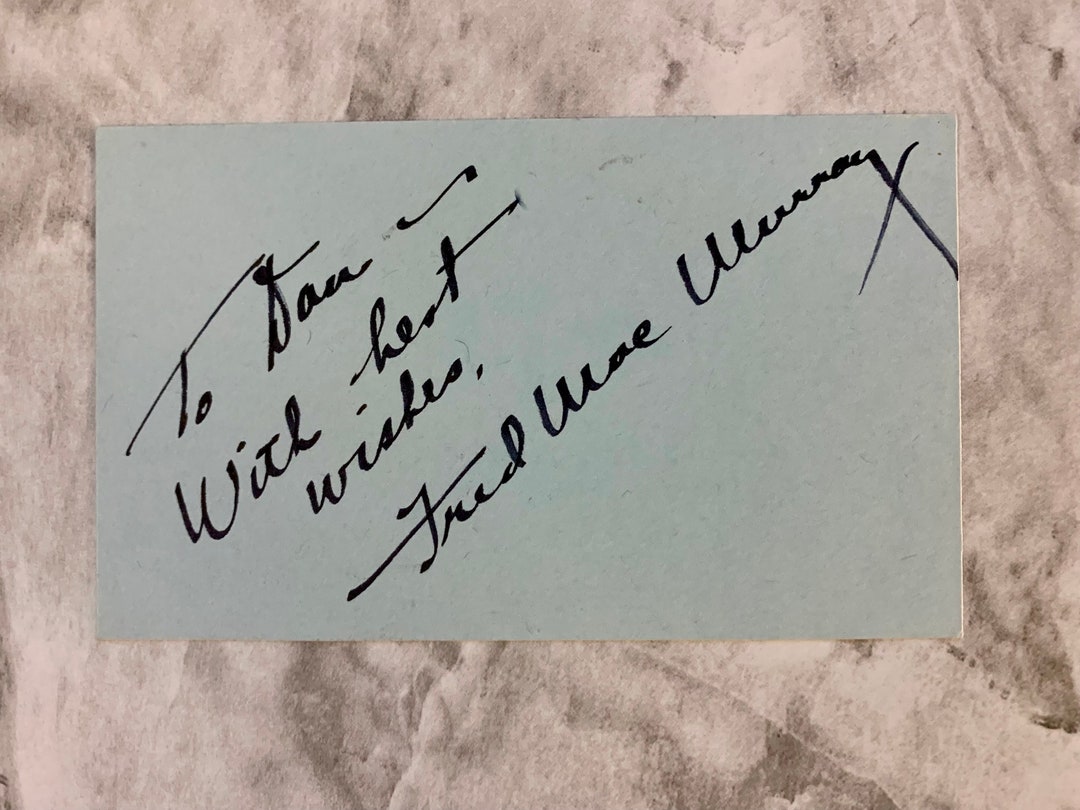 To Dan
With best
wishes,
Fred Mac Murray